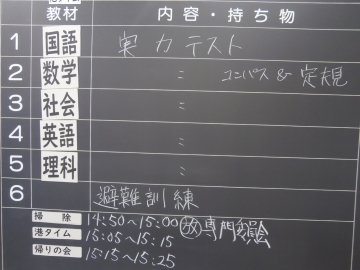 教材 内容・持ち物
1 国語 実力テスト
2 数学 〃 コンパス & 定規
3 社会 〃
4 英語 〃
5 理科 〃
6 避難訓練
掃除 14:50～15:00 放 専門委員会
港タイム 15:05～15:15
帰りの会 15:15～15:25